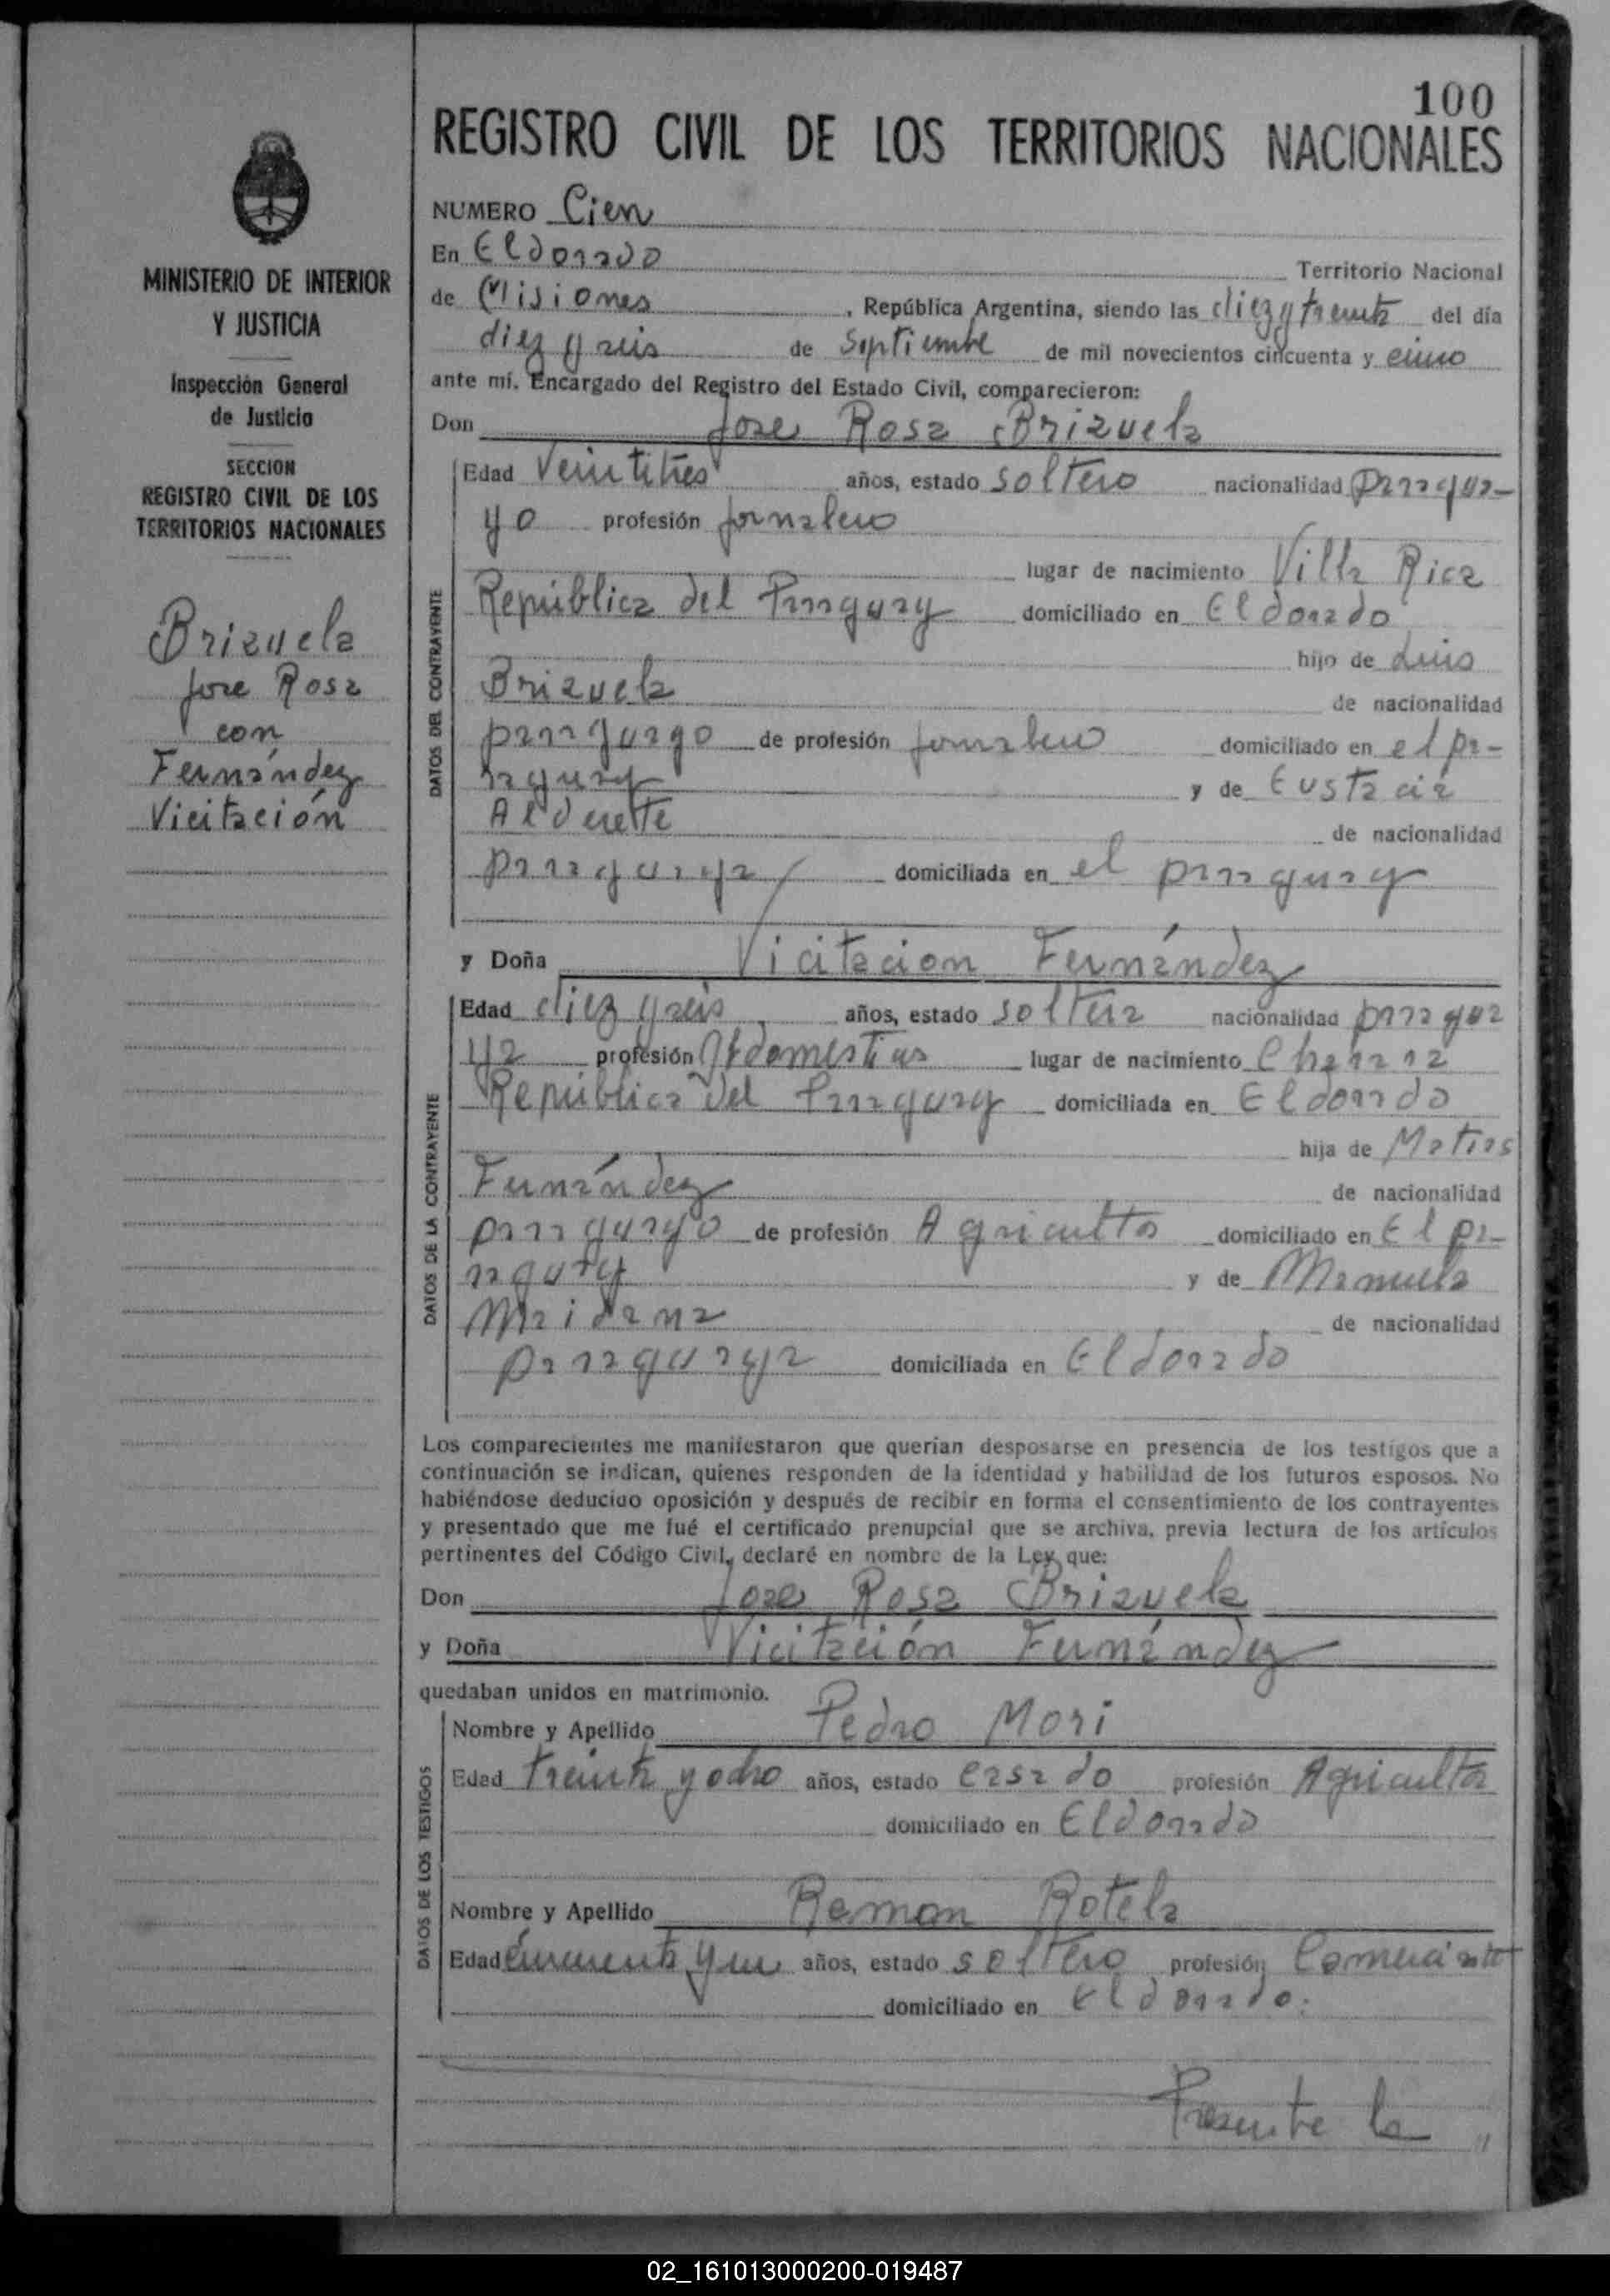 100
REGISTRO CIVIL DE LOS TERRITORIOS NACIONALES
MINISTERIO DE INTERIOR
Y JUSTICIA
Inspección General
de Justicia
SECCION
REGISTRO CIVIL DE LOS
TERRITORIOS NACIONALES
Brizuela
Jose Rosa
con
Fernández
Vicitación
NUMERO Cien
En Eldorado Territorio Nacional
de Misiones, República Argentina, siendo las diez y treinta del día
diez y seis de Septiembre de mil novecientos cincuenta y cinco
ante mí. Encargado del Registro del Estado Civil, comparecieron:
Don Jose Rosa Brizuela
DATOS DEL CONTRAYENTE
Edad Veintitres años, estado soltero nacionalidad paragua-
yo profesión jornalero
lugar de nacimiento Villa Rica
República del Paraguay domiciliado en Eldorado
hijo de Luis
Brizuela de nacionalidad
paraguayo de profesión jornalero domiciliado en el pa-
raguay y de Eustacia
Alderette de nacionalidad
paraguaya domiciliada en el paraguay
y Doña Vicitacion Fernández
DATOS DE LA CONTRAYENTE
Edad diez y seis años, estado soltera nacionalidad paragua
ya profesión lugar de nacimiento
República del Paraguay domiciliada en Eldorado
hija de Matias
Fernández de nacionalidad
paraguayo de profesión Agricultor domiciliado en El pa-
raguay y de Manuela
Maidana de nacionalidad
paraguaya domiciliada en Eldorado
Los comparecientes me manifestaron que querían desposarse en presencia de los testigos que a
continuación se indican, quienes responden de la identidad y habilidad de los futuros esposos. No
habiéndose deducido oposición y después de recibir en forma el consentimiento de los contrayentes
y presentado que me fué el certificado prenupcial que se archiva, previa lectura de los artículos
pertinentes del Código Civil, declaré en nombre de la Ley que:
Don Jose Rosa Brizuela
y Doña Vicitación Fernández
quedaban unidos en matrimonio.
DATOS DE LOS TESTIGOS
Nombre y Apellido Pedro Mori
Edad treinta y ocho años, estado casado profesión Agricultor
domiciliado en Eldorado
Nombre y Apellido Ramon Rotela
Edad cincuenta y un años, estado soltero profesión Comerciante
domiciliado en Eldorado.
Presente la "
02_161013000200-019487